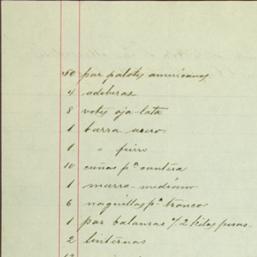 50 par palotes americanos
4 adoberas
8 votes oja-lata
1 barra acero
1 " fierro
10 cuñas pª cantera
1 marro mediano
6 naquillas pª tronco
1 par balanzas c/2 kilos pesas
2 linternas